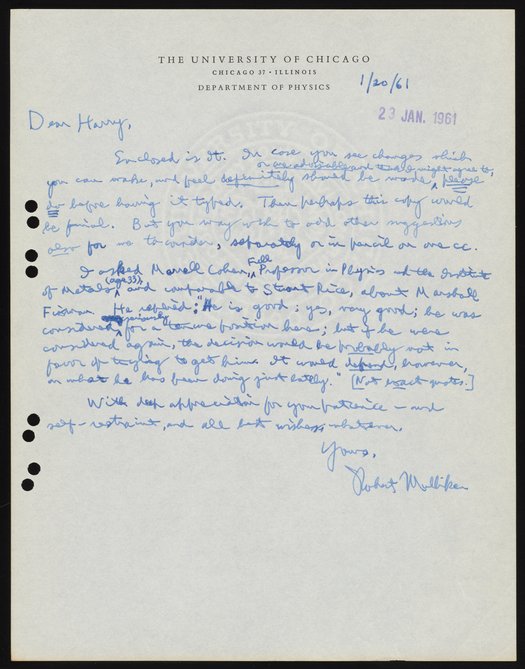 THE UNIVERSITY OF CHICAGO
CHICAGO 37 · ILLINOIS
DEPARTMENT OF PHYSICS
1/20/61
23 JAN. 1961
Dear Harry,
Enclosed is It. In case you see changes which
or are advisable and that I might agree to,
you can make, and feel definitely should be made, please
do before having it typed. Then perhaps this copy could
be final. But you may wish to add other suggestions
also for me to consider, separately or in pencil on one cc.
I asked Morrell Cohen, Full Professor in Physics and the Institute
of Metals (age 33), and comparable to Stuart Rice, about Marshall
Fixman. He replied: "He is good; yes, very good; he was
considered seriously for a tenure position here; but if he were
considered again, the decision would be probably not in
favor of trying to get him. It would depend, however,
on what he has been doing just lately." [Not exact quote.]
With deep appreciation for your patience – and
self-restraint, and all best wishes, whatever,
Yours,
Robert Mulliken